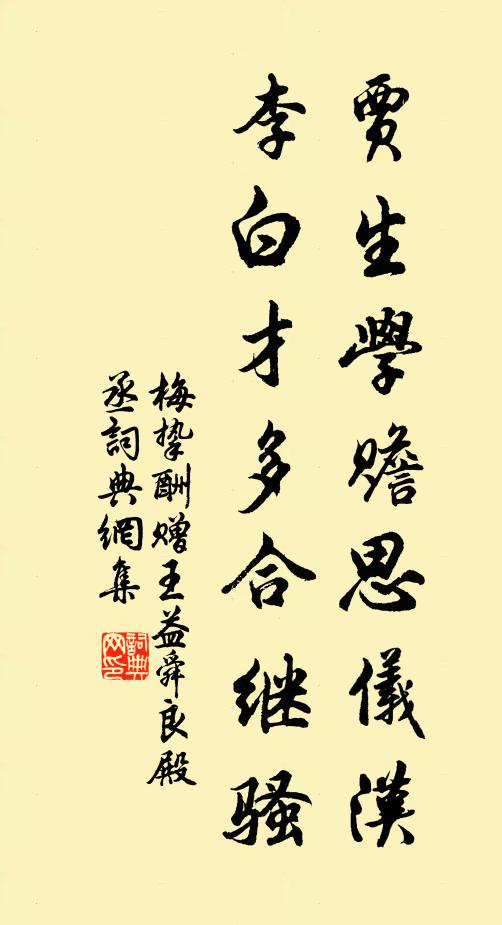 賈生學贍思儀漢
李白才多合继骚
梅挚酬赠王益舜良殿
丞詞典網集
詞典网印